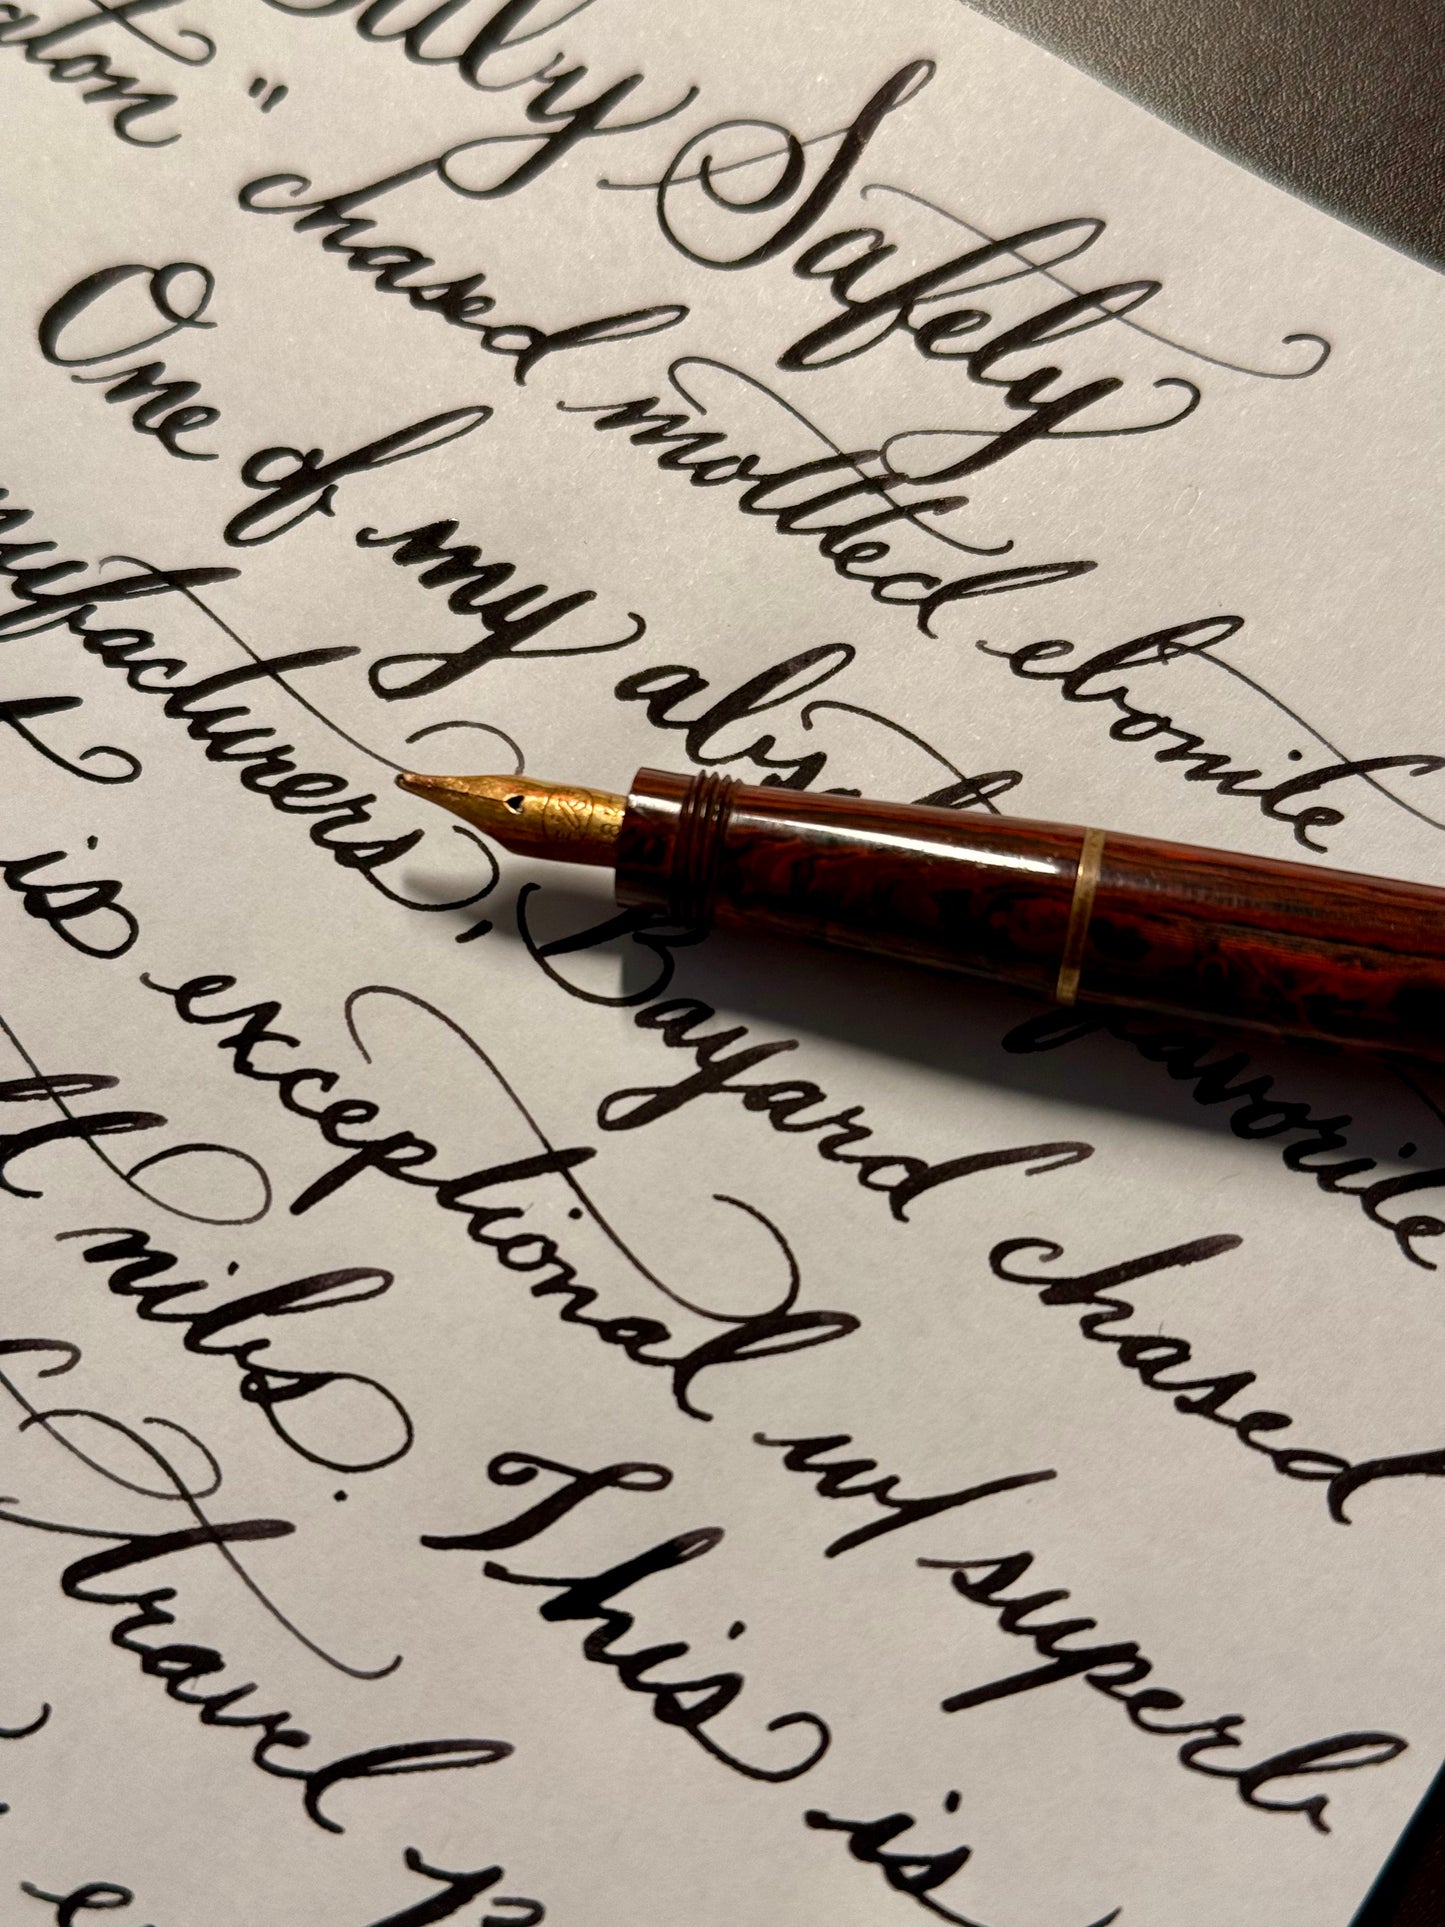 Safety
" chased mottled ebonite
One of my favorite
manufacturers, Bayard chased
is exceptional w/ superb
nibs. This is
travel